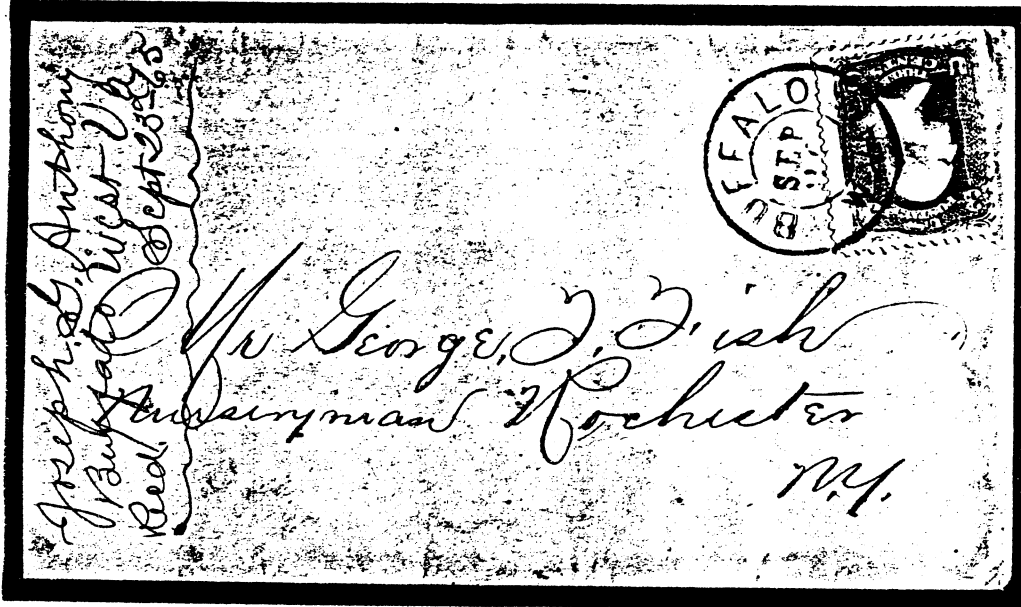 Joseph. G. Anthony
Buffalo West Va
Recd. Sept 25-65
BUFFALO
SEP
Mr George, F. Fish
Nurseryman Rochester
N.Y.